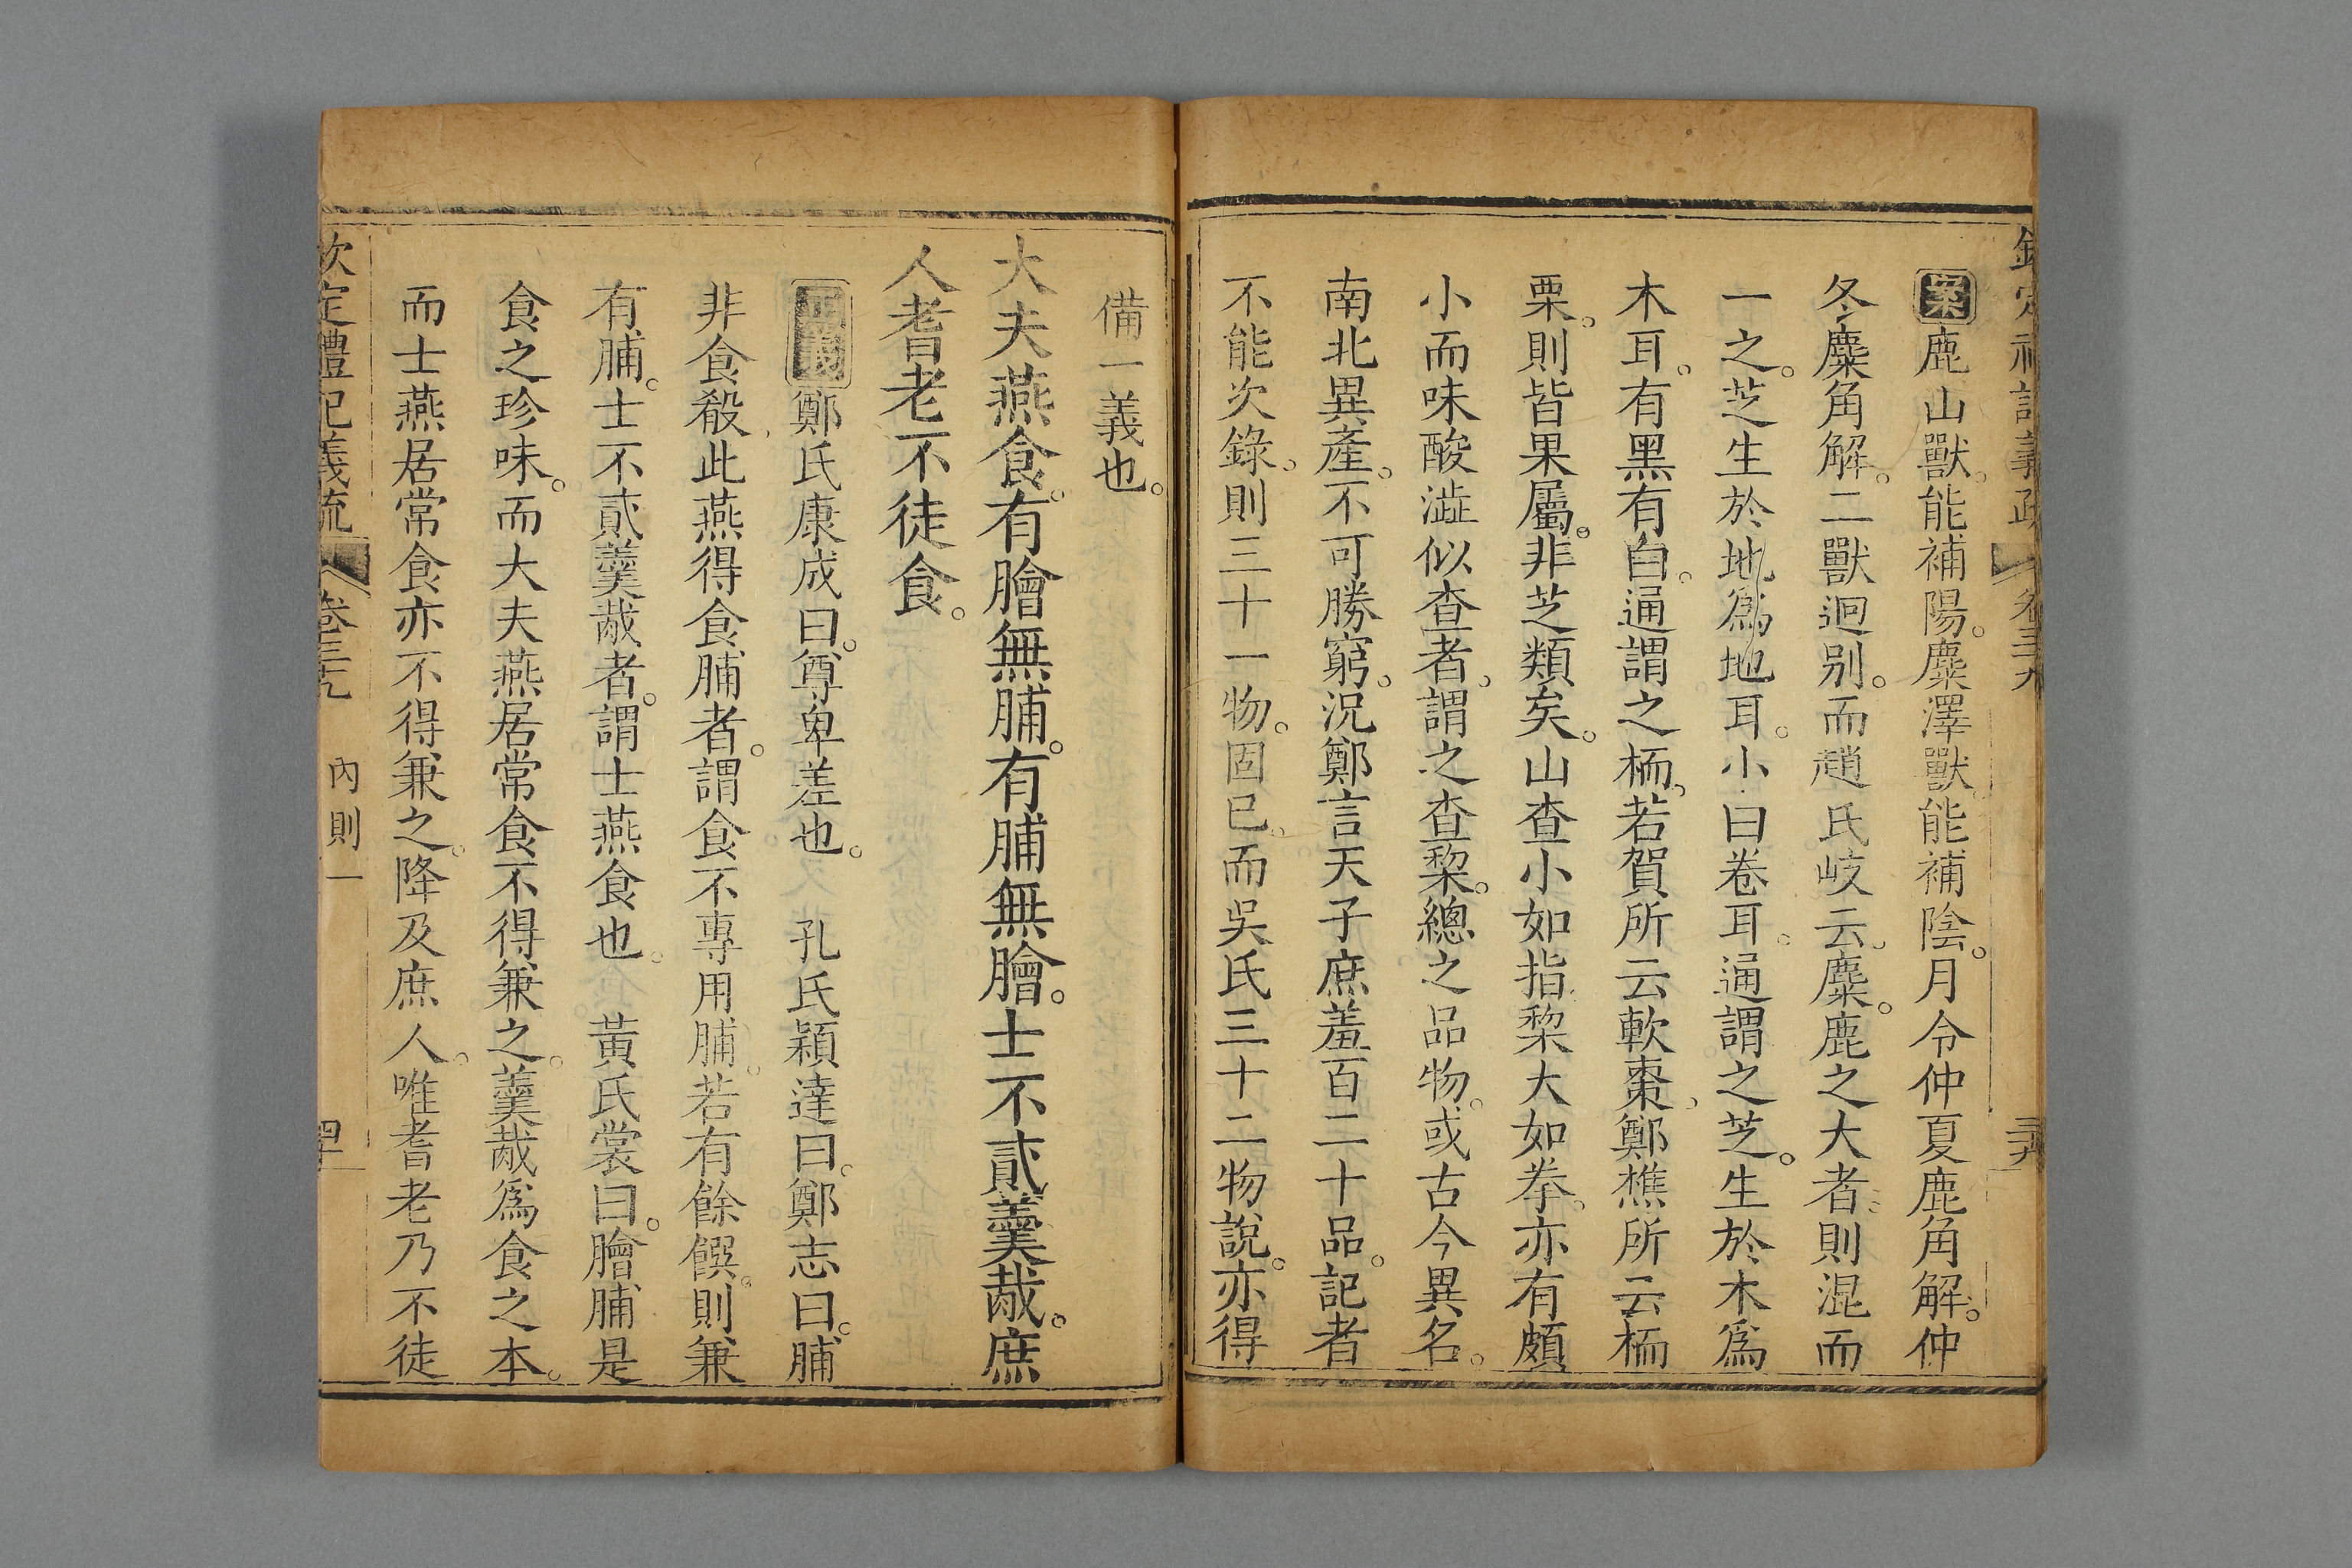 欽定禮記義疏 卷三十九 三十九
案鹿山獸。能補陽。麋澤獸。能補陰。月令仲夏鹿角解。仲
冬麋角解。二獸迥别。而趙氏岐云。麋。鹿之大者。則混而
一之。芝生於地爲地耳。小曰卷耳。通謂之芝。生於木爲
木耳。有黑有白。通謂之栭。若賀所云軟棗。鄭樵所云栭
栗。則皆果屬。非芝類矣。山查小如指。棃大如拳。亦有頗
小而味酸澁似查者。謂之查棃。總之品物。或古今異名。
南北異產。不可勝窮。況鄭言天子庶羞百二十品。記者
不能次錄。則三十一物。固已。而吳氏三十二物說。亦得
備一義也。
大夫燕食。有膾無脯。有脯無膾。士不貳羹胾。庶
人耆老不徒食。
鄭氏康成曰。尊卑差也。 孔氏穎達曰。鄭志曰。脯
非食殽。此燕得食脯者。謂食不專用脯。若有餘饌。則兼
有脯。士不貳羹胾者。謂士燕食也。 黃氏裳曰。膾脯是
食之珍味。而大夫燕居常食不得兼之。羹胾爲食之本。
而士燕居常食亦不得兼之。降及庶人。唯耆老乃不徒
欽定禮記義疏 卷三十九 內則一 四十